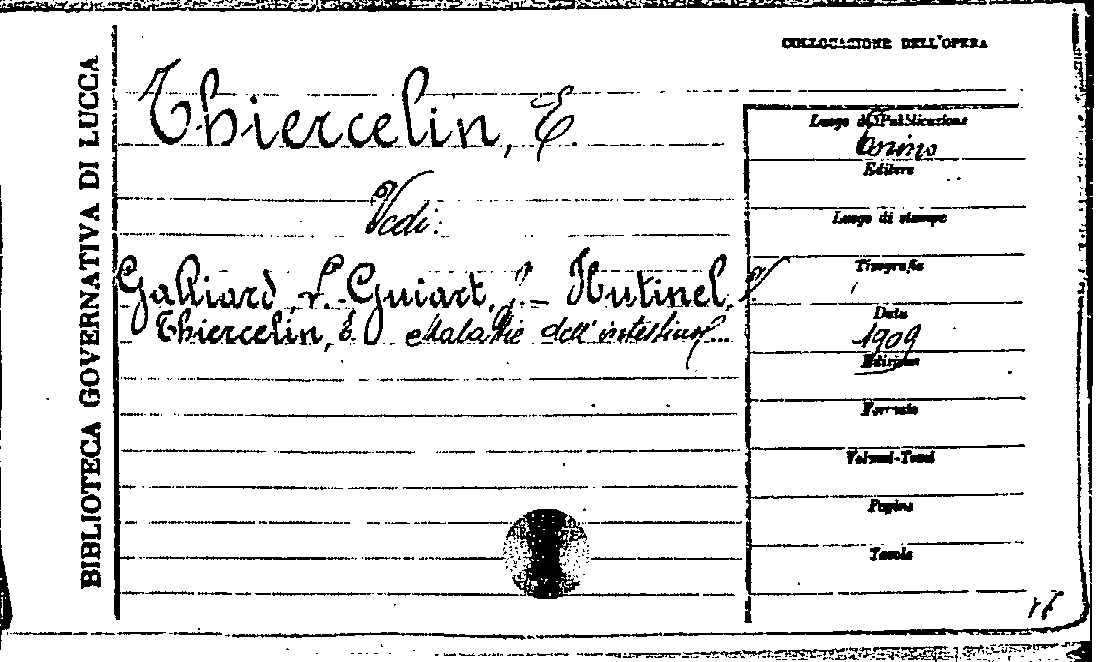 BIBLIOTECA GOVERNATIVA DI LUCCA
COLLOCAZIONE DELL'OPERA
Thiercelin, E.
Vedi:
Galliard, L. - Guiart, J. - Hutinel, V
Thiercelin, E. Malattie dell'intestino...
Luogo di Pubblicazione
Torino
Editore
Luogo di stampa
Tipografia
Data
1909
Edizione
Formato
Volumi-Tomi
Pagine
Tavole